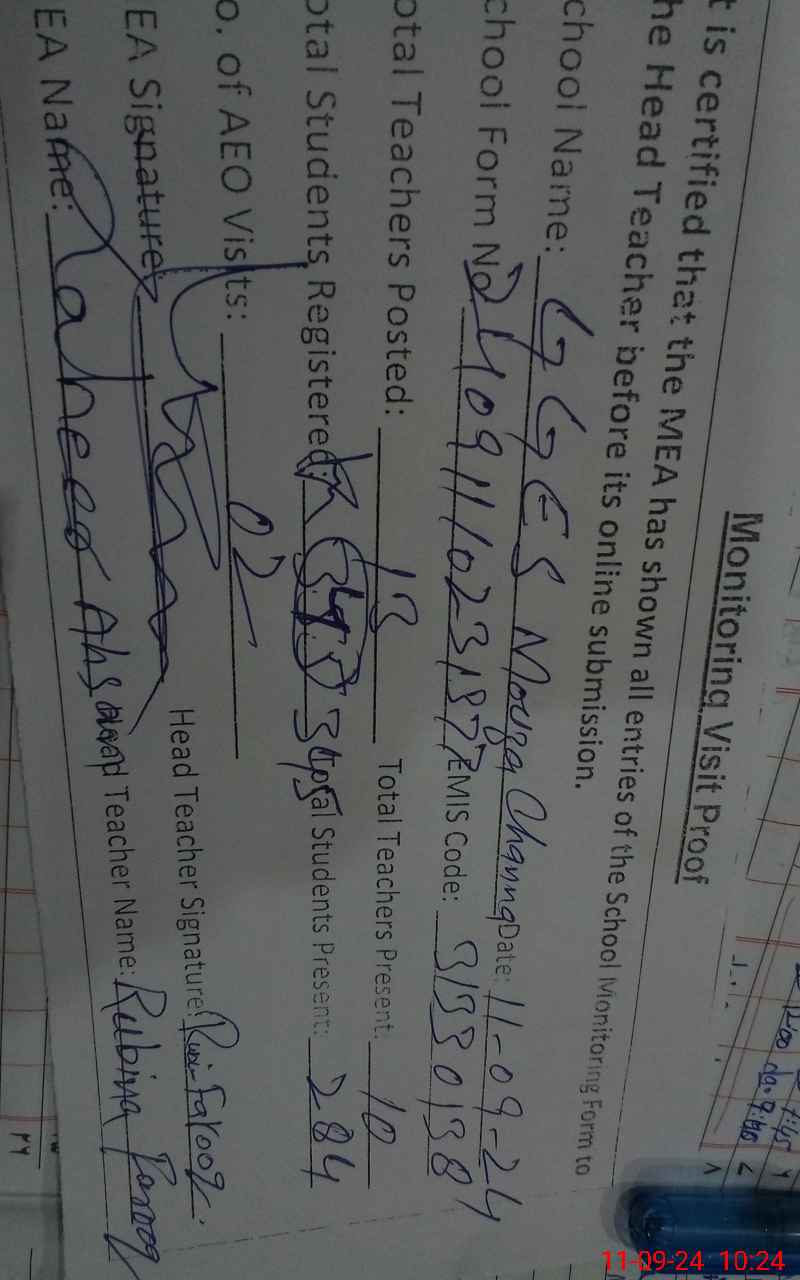 Monitoring Visit Proof
t is certified that the MEA has shown all entries of the School Monitoring Form to
he Head Teacher before its online submission.
chool Name: GGES Mouza Channa Date: 11-09-24
chool Form No 2409110231877 EMIS Code: 31330138
otal Teachers Posted: 13 Total Teachers Present: 10
otal Students Registered: 345 Total Students Present: 284
o. of AEO Visits: 02
EA Signature: Head Teacher Signature: Farooq
EA Name: Head Teacher Name: Rubina Farooq
11-09-24 10:24